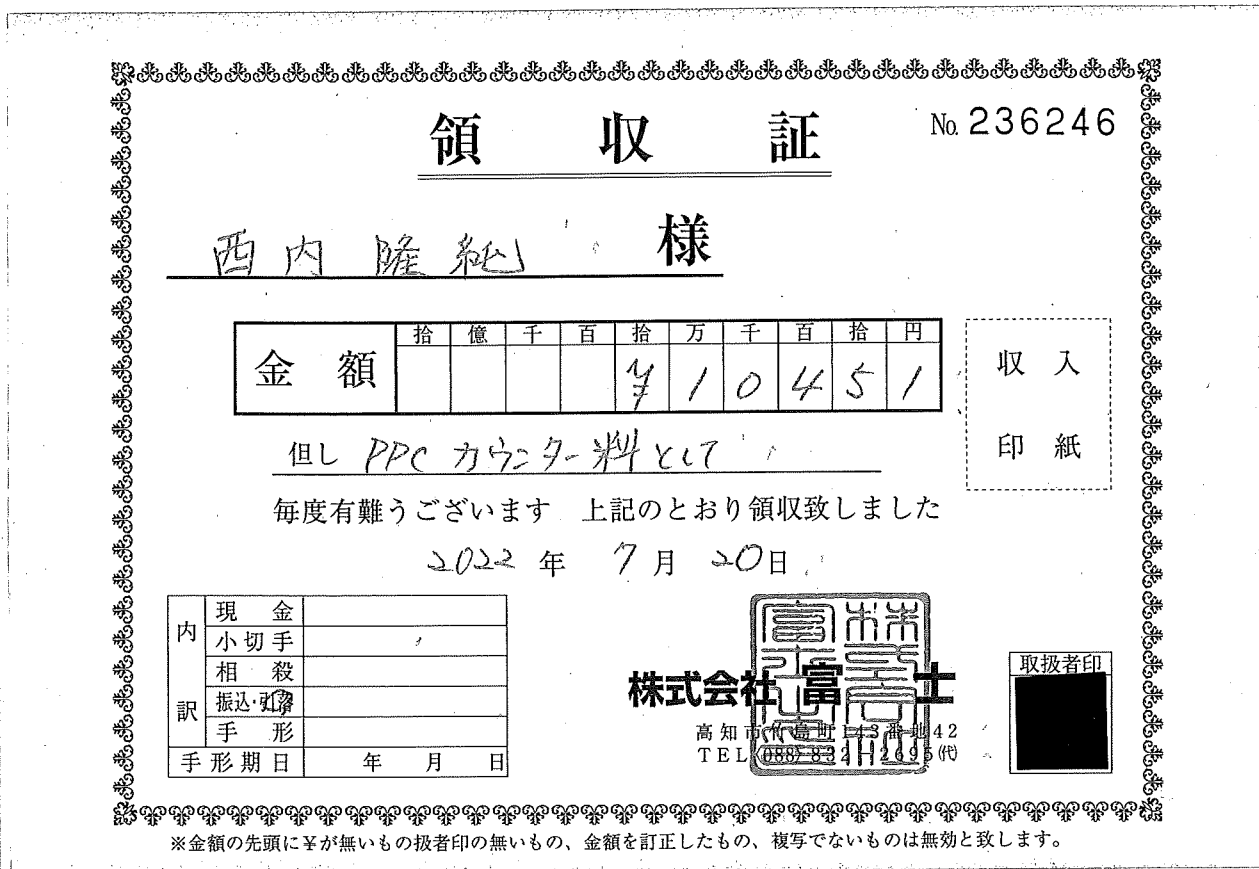 領 収 証
No. 236246
西内 隆純 様
拾 億 千 百 拾 万 千 百 拾 円
金 額 ¥ 1 0 4 5 1
収 入
印 紙
但し PPC カウンター料として
毎度有難うございます 上記のとおり領収致しました
2022 年 7 月 20 日
内訳
現 金
小切手
相 殺
振込・引落
手 形
手形期日 年 月 日
株式会社 富士
高知市竹島町143番地42
TEL (088) 832-2695 ㈹
取扱者印
※金額の先頭に¥が無いもの扱者印の無いもの、金額を訂正したもの、複写でないものは無効と致します。